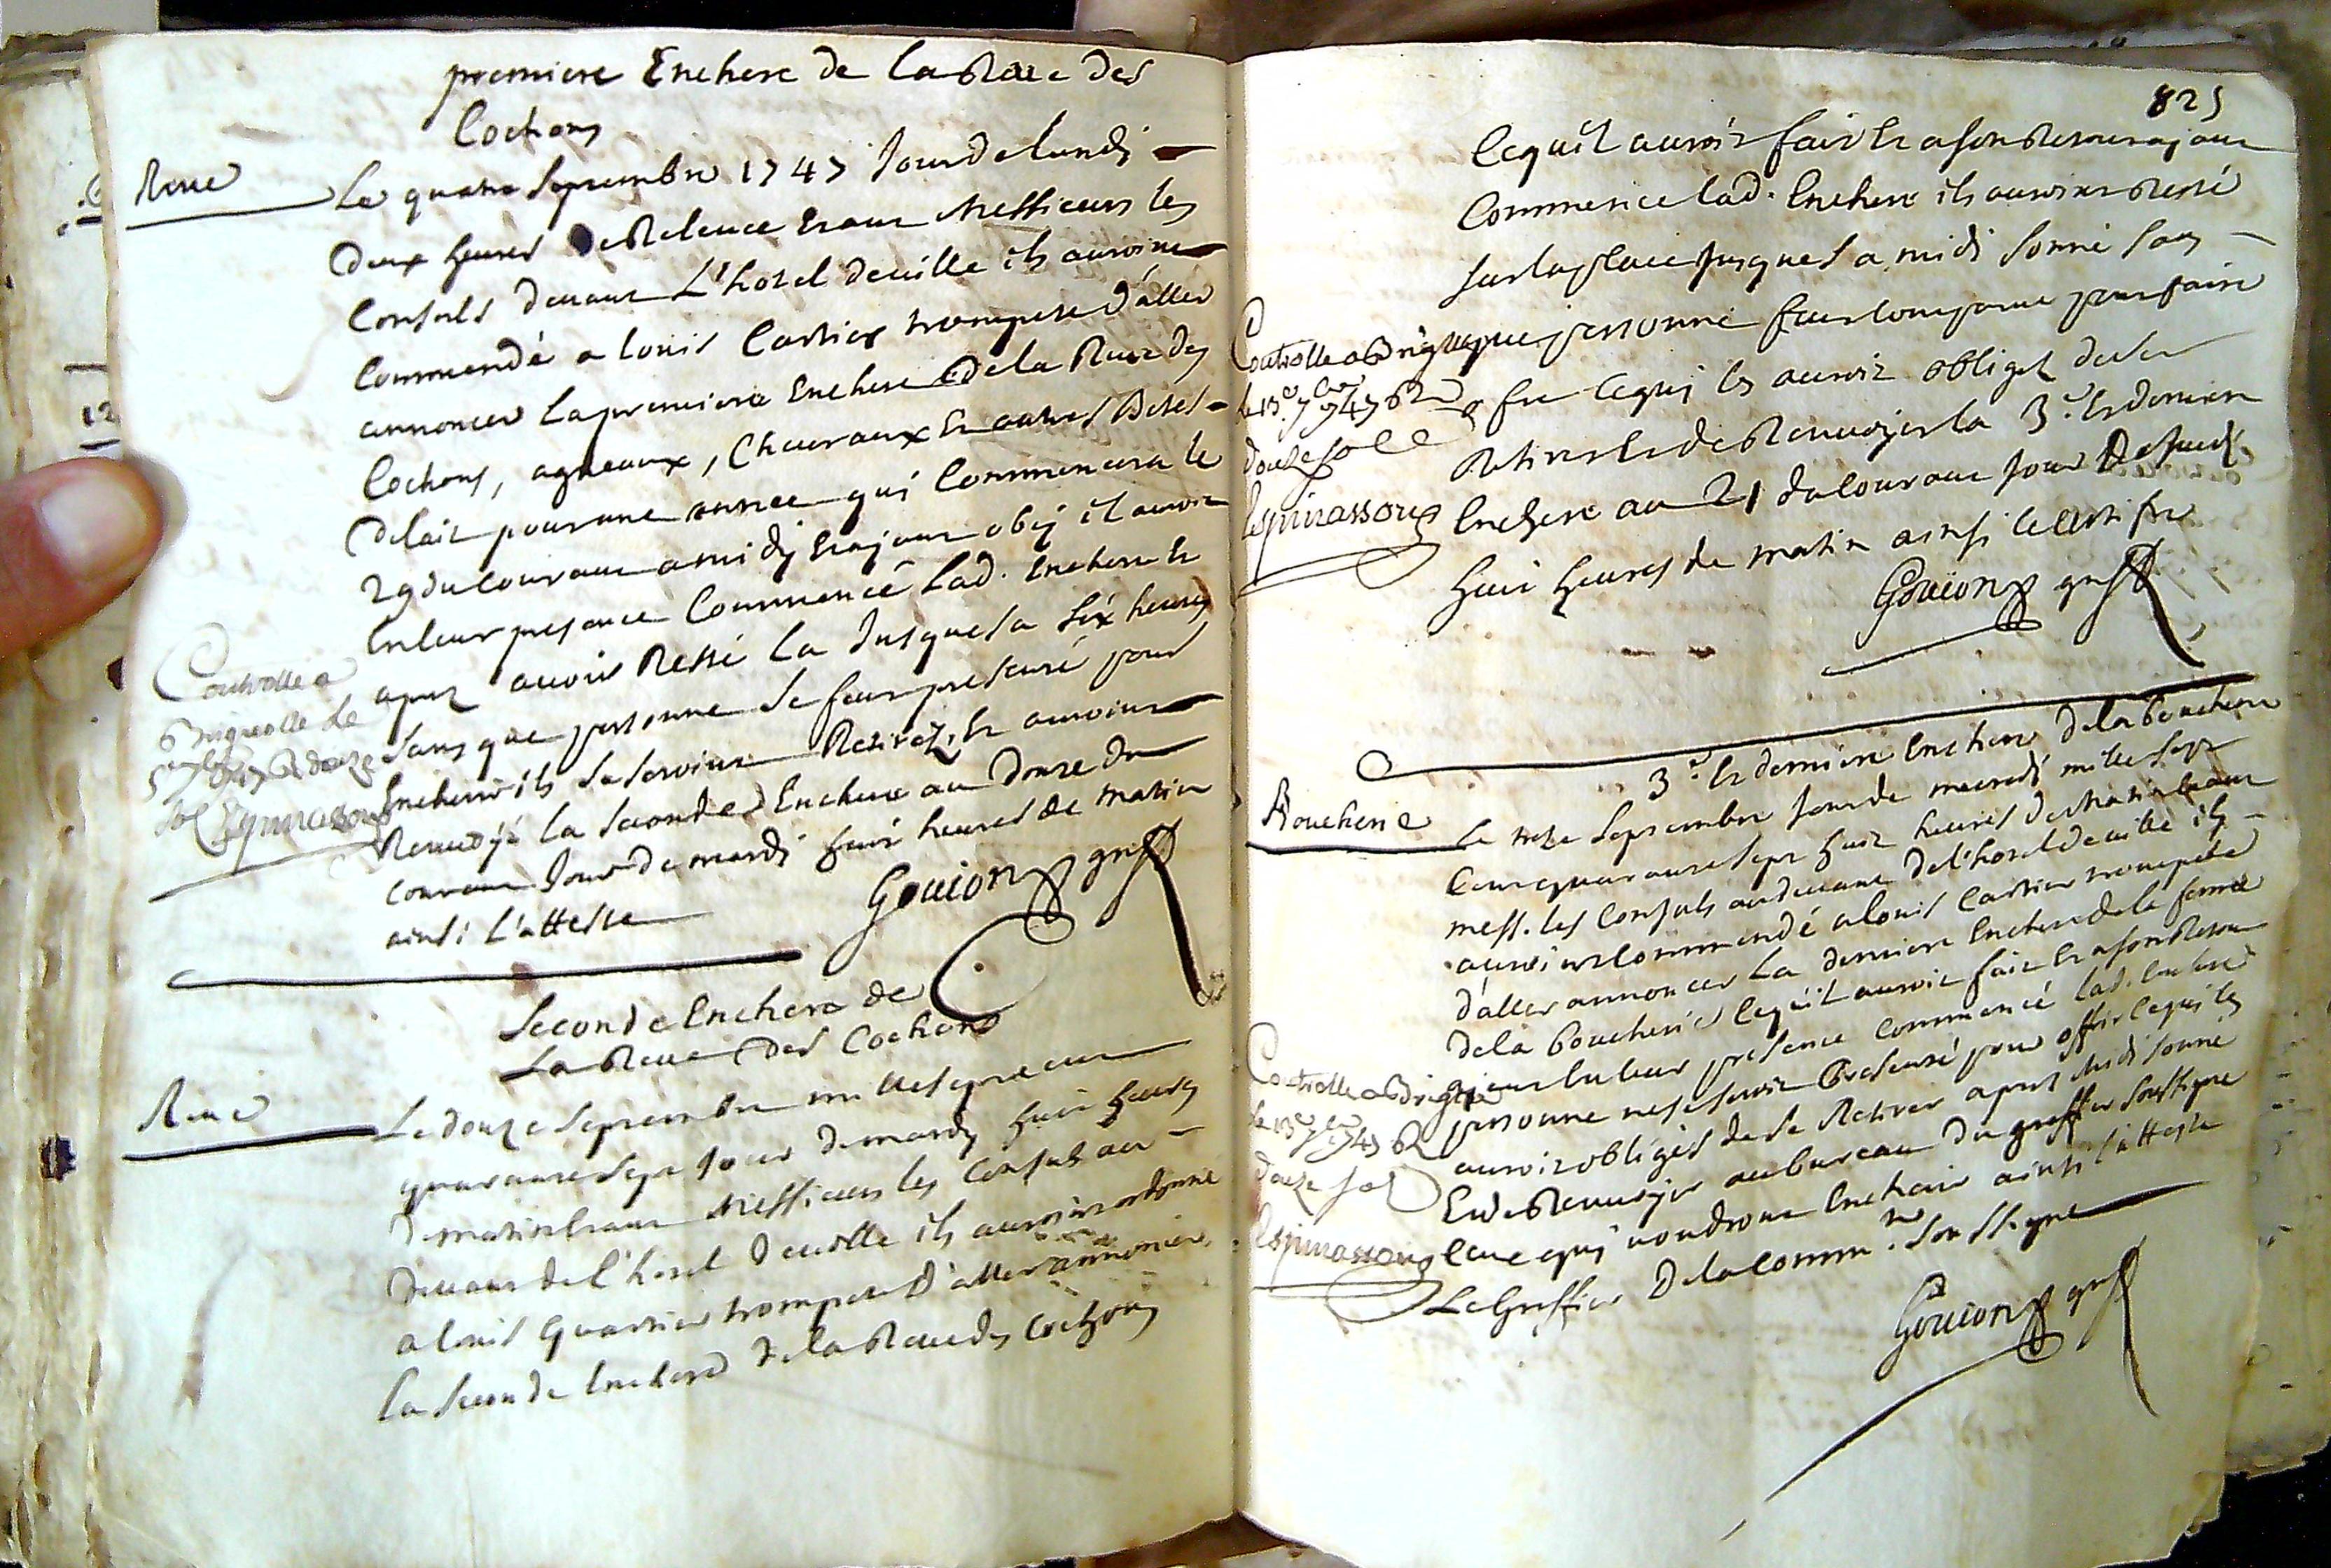 premiere Enchere de la Reve des
Cochons
Reve
Le quatre septembre 1747 Jour de lundi
deux heures de Releuee Etant Messieurs les
Consuls deuant L'hotel deuille ils auroint
Commendé a louis Cartier trompete d'aller
annoncer la premiere Enchere de la Reue des
Cochons, agneaux, Cheuraux Et autres Betes
delait pour une année qui Commencera le
29 du courant a midy
En leur presance Commencé lad. Enchere Et
aprez auoir Resté La Jusques a six heures
sans que personne se feut presenté pour
Encherir ils se seroint Retirez, Et auroint
Renuoyé la seconde Enchere au Douze du
courant Jour de mardi huit heures de matin
ainsi L'atteste
Gouion greff
Controlle a
Brignolle le
5e 7bre 1747 R douze
sol Espinasson
Seconde Enchere de
La Reue des Cochons
Reue
Le douze septembre mille sept cent
quarante sept Jour de mardy huit heures
de matin Etant Messieurs les Consuls au
deuant de l'hotel deuille ils auroint ordonné
a louis Quartier trompete d'aller annoncer
la seconde Enchere de la Reue des Cochons
825
Ce qu'il auroit fait Et a son Retour
Commencé lad. Enchere ils auroint Resté
sur la place Jusques a midi sonné sans
que personne feut comparue pour faire
offre Ce qui les auroit obligez de se
Retirer Et de Renuoyer la 3e. Et derniere
Enchere au 21 du Courant Jour De Jeudi
huit heures de matin ainsi Le Certifie
Gouion greff
Controlle a Brignolle
le 13e 7bre 1747 R
douze sol
Espinasson
3e. Et derniere Enchere de la boucherie
Boucherie
Le treze septembre Jour de mecredi mille sept
Cent quarante sept huit heures de Matin Etant
mess. les Consuls au deuant de l'hotel de uille ils
auroint Commendé a louis Cartier trompete
d'aller annoncer La derniere Enchere de la ferme
de la boucherie Ce qu'il auroit fait Et a son Retour
ayant En leur presence commencé lad. Enchere
personne ne se seroit Presenté pour offrir Ce qui les
auroit obligés de se Retirer aprez Midi sonné
Et de Renuoyer au bureau du greffier soussigné
Ceux qui uoudront Encherir ainsi l'atteste
Le Greffier De la Comm.té soussigné
Gouion greff
Controlle a Brignolle
le 13e 7bre 1747 R
douze sol
Espinasson